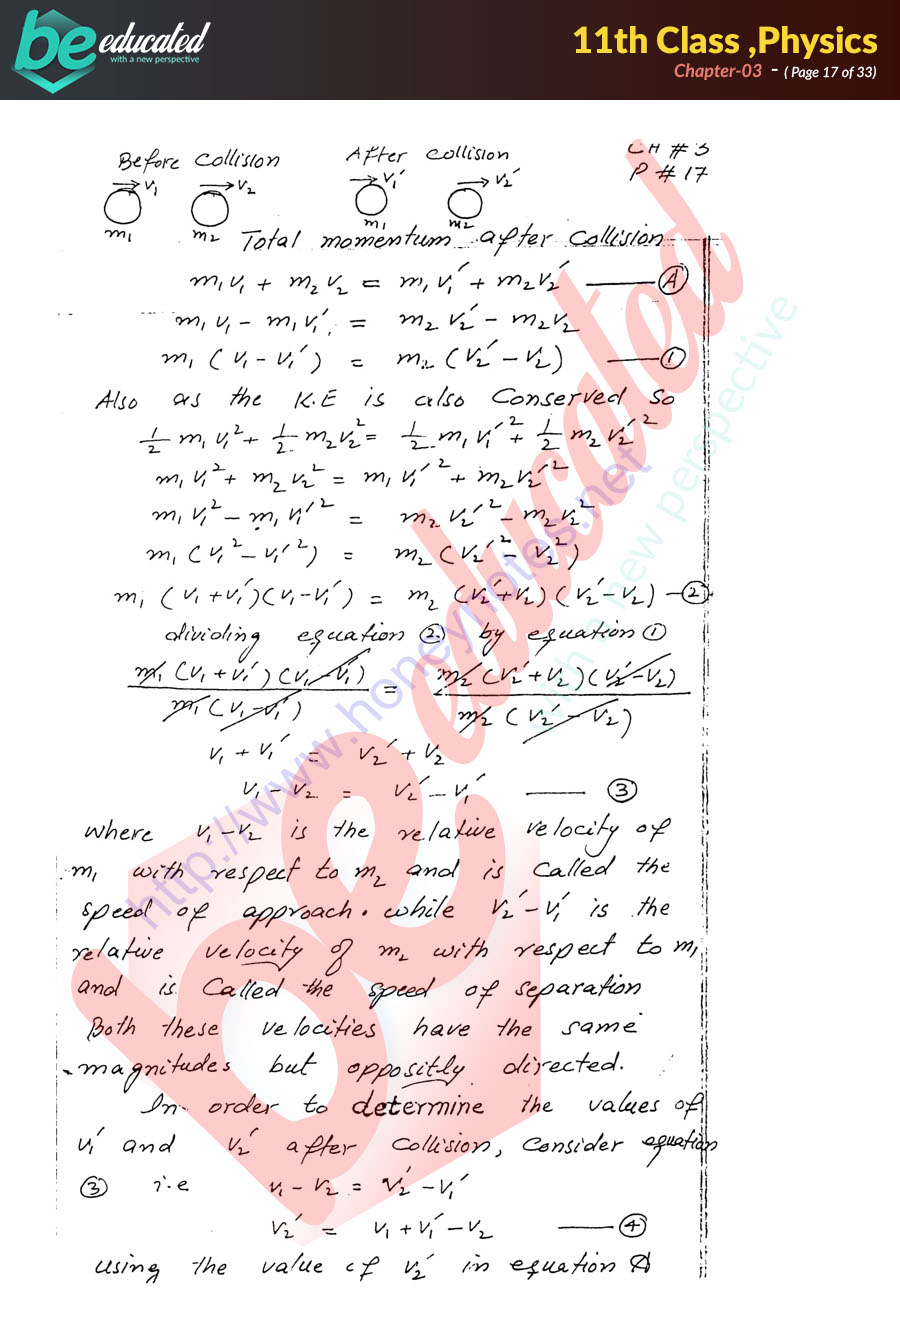 be educated
with a new perspective
11th Class ,Physics
Chapter-03 - ( Page 17 of 33)
CH # 3
P # 17
Before Collision After Collision
→v₁ →v₂ →v₁′ →v₂′
m₁ m₂ m₁ m₂
Total momentum after Collision
m₁v₁ + m₂v₂ = m₁v₁′ + m₂v₂′ —— Ⓐ
m₁v₁ - m₁v₁′ = m₂v₂′ - m₂v₂
m₁ (v₁ - v₁′) = m₂ (v₂′ - v₂) —— ①
Also as the K.E is also Conserved So
½ m₁v₁² + ½ m₂v₂² = ½ m₁v₁′² + ½ m₂v₂′²
m₁v₁² + m₂v₂² = m₁v₁′² + m₂v₂′²
m₁v₁² - m₁v₁′² = m₂v₂′² - m₂v₂²
m₁ (v₁² - v₁′²) = m₂ (v₂′² - v₂²)
m₁ (v₁ + v₁′)(v₁ - v₁′) = m₂ (v₂′ + v₂)(v₂′ - v₂) — ②
dividing equation ② by equation ①
m₁ (v₁ + v₁′)(v₁ - v₁′) = m₂ (v₂′ + v₂)(v₂′ - v₂)
m₁ (v₁ - v₁′) m₂ (v₂ - v₂)
v₁ + v₁′ = v₂′ + v₂
v₁ - v₂ = v₂′ - v₁′ —— ③
where v₁ - v₂ is the relative velocity of
m₁ with respect to m₂ and is Called the
speed of approach. while v₂′ - v₁′ is the
relative velocity of m₂ with respect to m₁
and is Called the speed of separation
Both these velocities have the same
magnitudes but oppositly directed.
In order to determine the values of
v₁′ and v₂′ after Collision, Consider equation
③ i.e v₁ - v₂ = v₂′ - v₁′
v₂′ = v₁ + v₁′ - v₂ —— ④
using the value of v₂′ in equation A
http://www.honeynotes.net
be educated
with a new perspective